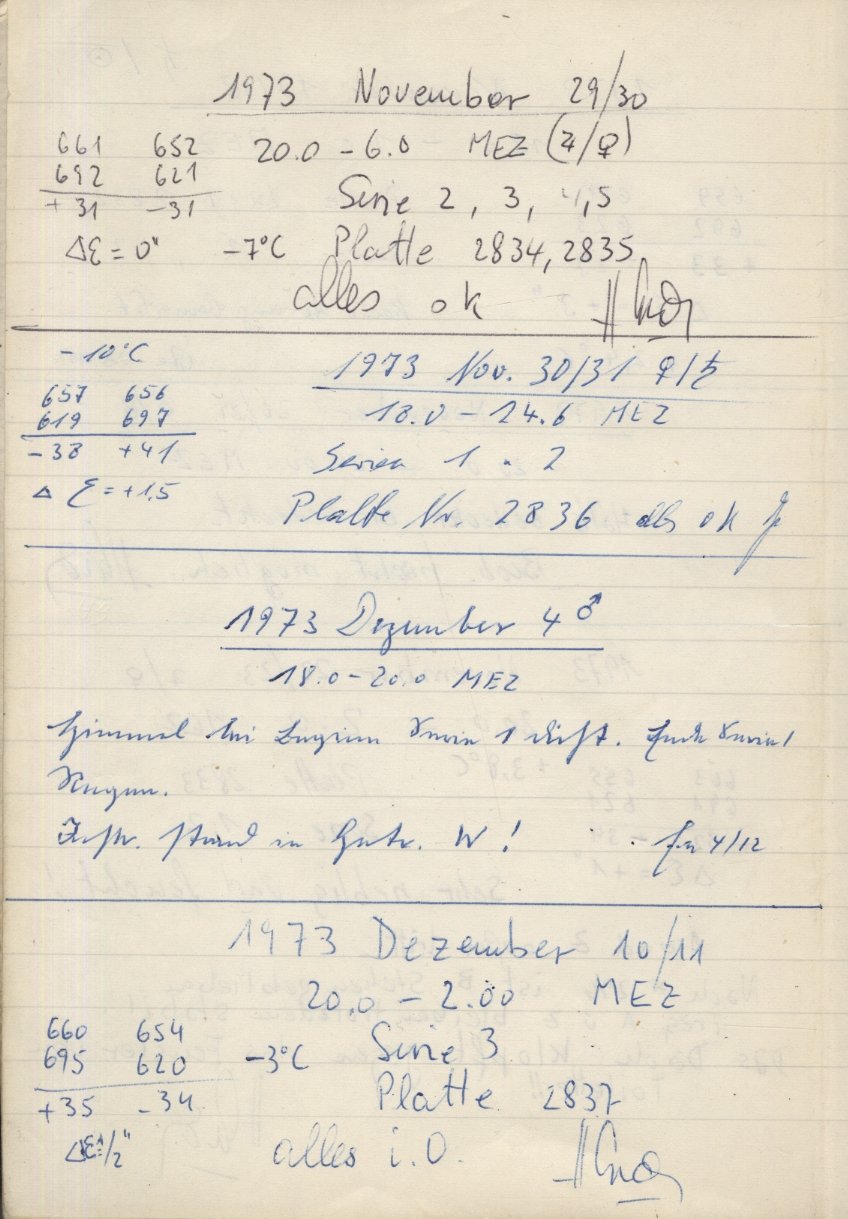 1973 November 29/30
661 652 20.0 - 6.0 MEZ (♃/♀)
692 621 Serie 2, 3, 4, 5
+31 -31
Δε = 0" -7°C Platte 2834, 2835
alles ok
-10°C 1973 Nov. 30/31 ♀/♄
657 656 18.0 - 24.6 MEZ
619 697
-38 +41 Serien 1 2
Δ ε = +1.5 Platte Nr. 2836 alles ok
1973 Dezember 4 ♂
18.0 - 20.0 MEZ
Himmel bei Beginn Serie 1 dicht. Ende Serie 1
Regen.
Instr. stand in W!
4/12
1973 Dezember 10/11
20.0 - 2.00 MEZ
660 654
695 620 -3°C Serie 3
+35 -34 Platte 2837
Δε 1/2" alles i.O.